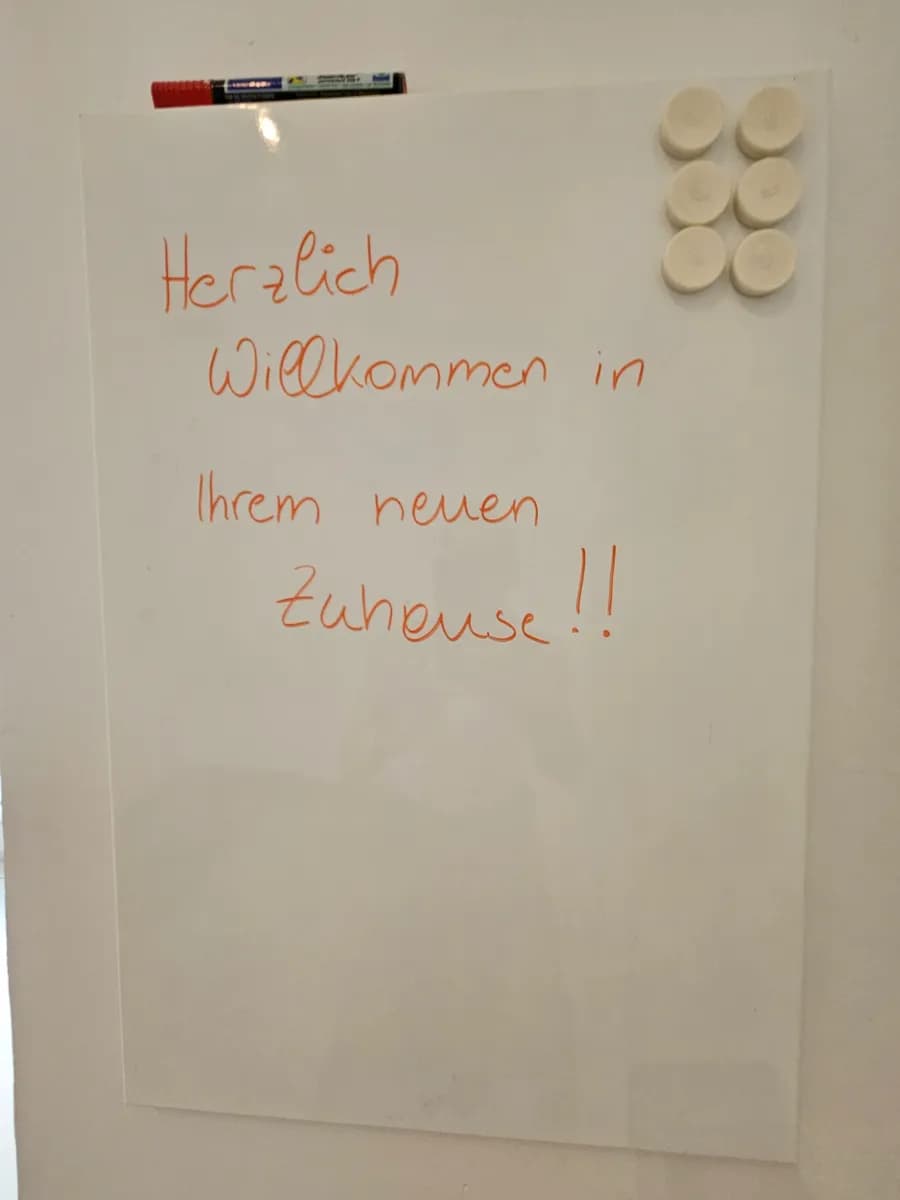 Herzlich
Willkommen in
Ihrem neuen
Zuhause!!